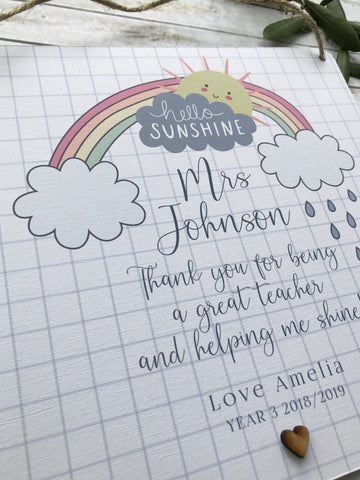 hello
SUNSHINE
Mrs
Johnson
Thank you for being
a great teacher
and helping me shine
Love Amelia
YEAR 3 2018/2019